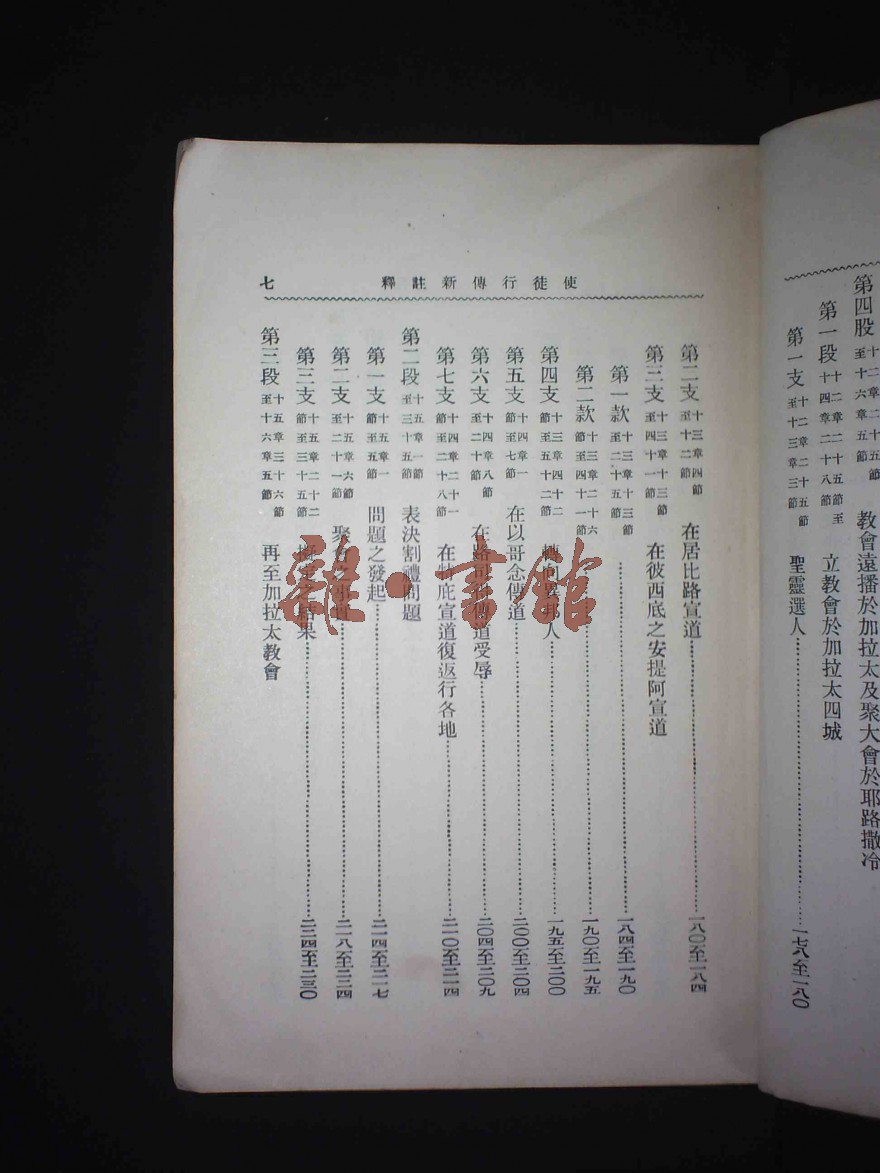 第四股 十二章二十五節至十六章五節 教會遠播於加拉太及聚大會於耶路撒冷
第一段 十二章二十五節至十四章二十八節 立教會於加拉太四城
第一支 十二章二十五節至十三章三節 聖靈選人 一七八至一八〇
使徒行傳新註釋 七
第二支 十三章四節至十二節 在居比路宣道 一八〇至一八四
第三支 十三章十三節至四十一節 在彼西底之安提阿宣道
第一款 十三章十三節至二十五節 一八四至一九〇
第二款 十三章二十六節至四十一節 一九〇至一九五
第四支 十三章四十二節至五十二節 轉向異邦人 一九五至二〇〇
第五支 十四章一節至七節 在以哥念傳道 二〇〇至二〇四
第六支 十四章八節至二十節 在路司得傳道受辱 二〇四至二〇九
第七支 十四章二十一節至二十八節 在特庇宣道復返行各地 二一〇至二一四
第二段 十五章一節至三十五節 表決割禮問題
第一支 十五章一節至五節 問題之發起 二一四至二一七
第二支 十五章六節至二十一節 聚會之 二一八至二二四
第三支 十五章二十二節至三十五節 之結果 二二四至二三〇
第三段 十五章三十六節至十六章五節 再至加拉太教會
雜·書館